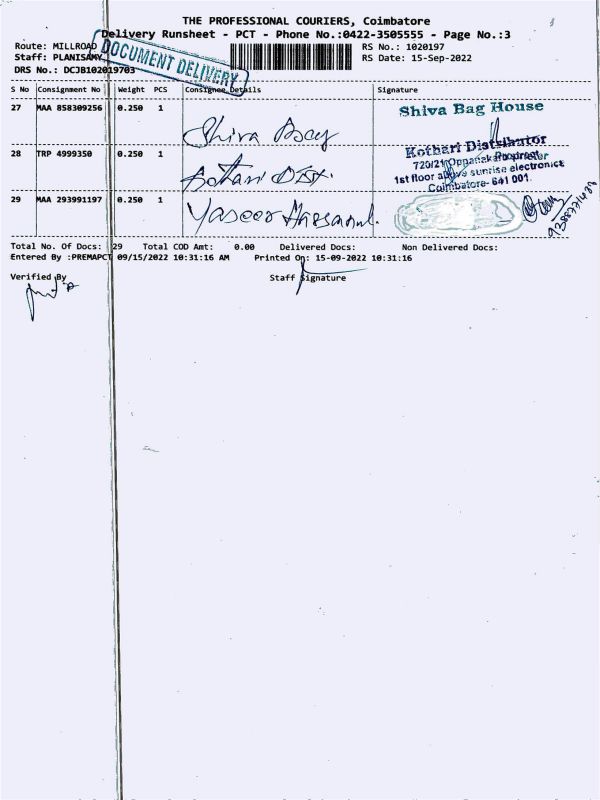 THE PROFESSIONAL COURIERS, Coimbatore
Delivery Runsheet - PCT - Phone No.:0422-3505555 - Page No.:3
Route: MILLROAD
Staff: PLANISAMY
DRS No.: DCJB102019703
DOCUMENT DELIVERY
RS No.: 1020197
RS Date: 15-Sep-2022
S No Consignment No Weight PCS Consignee Details Signature
27 MAA 858309256 0.250 1
Shiva Bag
Shiva Bag House
28 TRP 4999350 0.250 1
Kothari Dist.
Kothari Distributor
720/21, Oppanakara
Proprietor
1st floor above sunrise electronics
Coimbatore- 641 001.
29 MAA 293991197 0.250 1
Yaseer
Total No. Of Docs: 29 Total COD Amt: 0.00 Delivered Docs: Non Delivered Docs:
Entered By :PREMAPCT 09/15/2022 10:31:16 AM Printed On: 15-09-2022 10:31:16
Verified By
Staff Signature